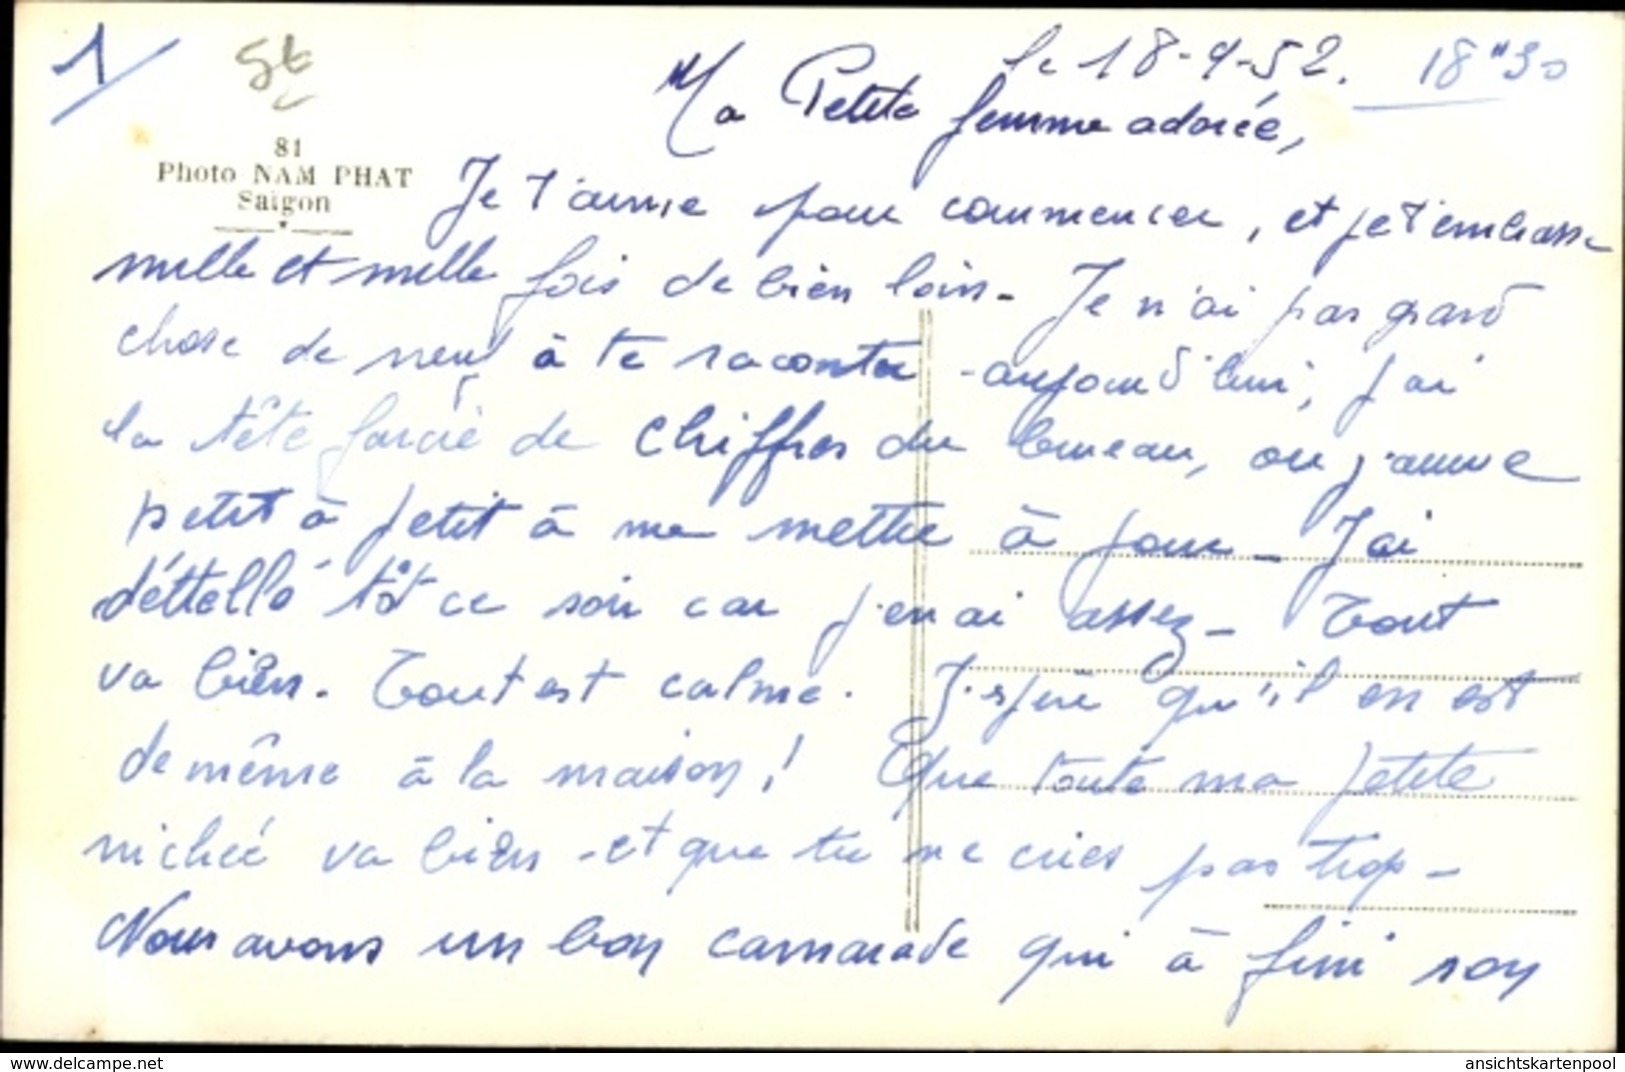 1
le 18-9-52. 18H30
Ma Petite femme adorée,
81
Photo NAM PHAT
Saigon
Je t'aime pour commencer, et je t'embrasse
mille et mille fois de bien loin. Je n'ai pas grand
chose de neuf à te raconter aujourd'hui, j'ai
la tête farcie de chiffres du bureau, ou j'arrive
petit à petit à me mettre à jour. J'ai
déttellé tôt ce soir car j'en ai assez. Tout
va bien. Tout est calme. J'espère qu'il en est
de même à la maison! Que toute ma petite
nichée va bien et que tu ne cries pas trop.
Nous avons un bon camarade qui à fini son
delcampe.net
ansichtskartenpool